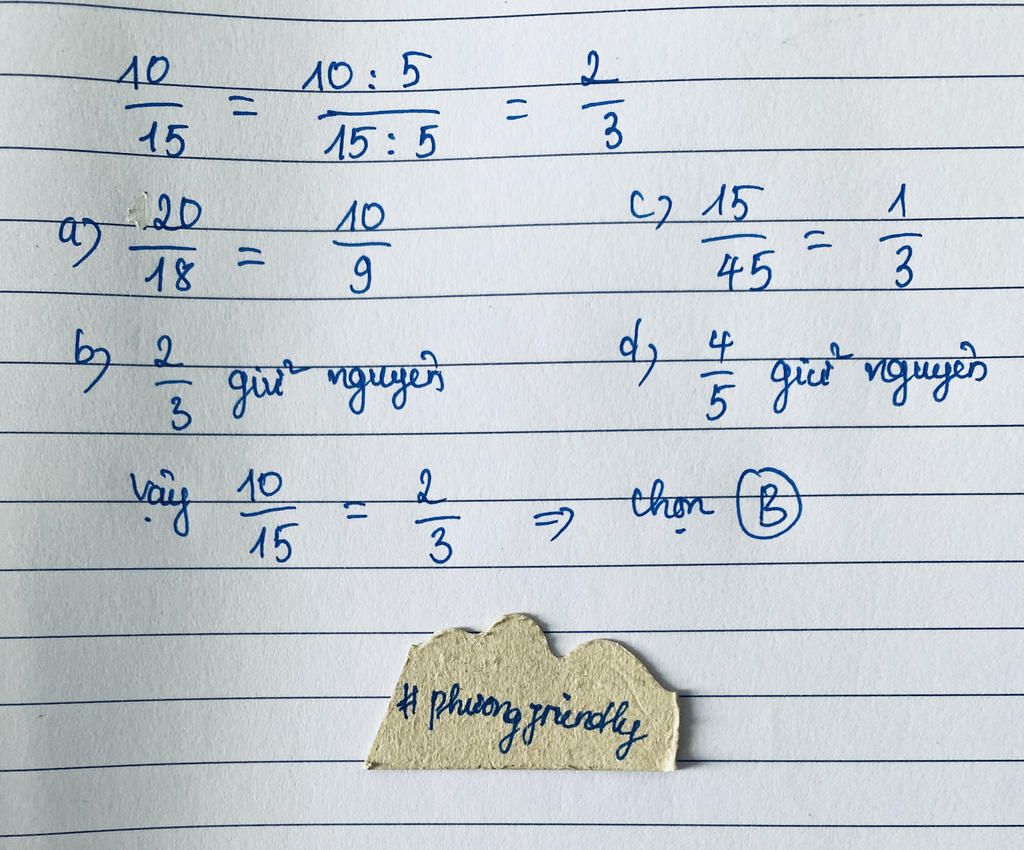 10/15 = 10 : 5/15 : 5 = 2/3
a) 20/18 = 10/9
c) 15/45 = 1/3
b) 2/3 giữ nguyên
d) 4/5 giữ nguyên
Vậy 10/15 = 2/3 => chọn B
# phuongfriendly